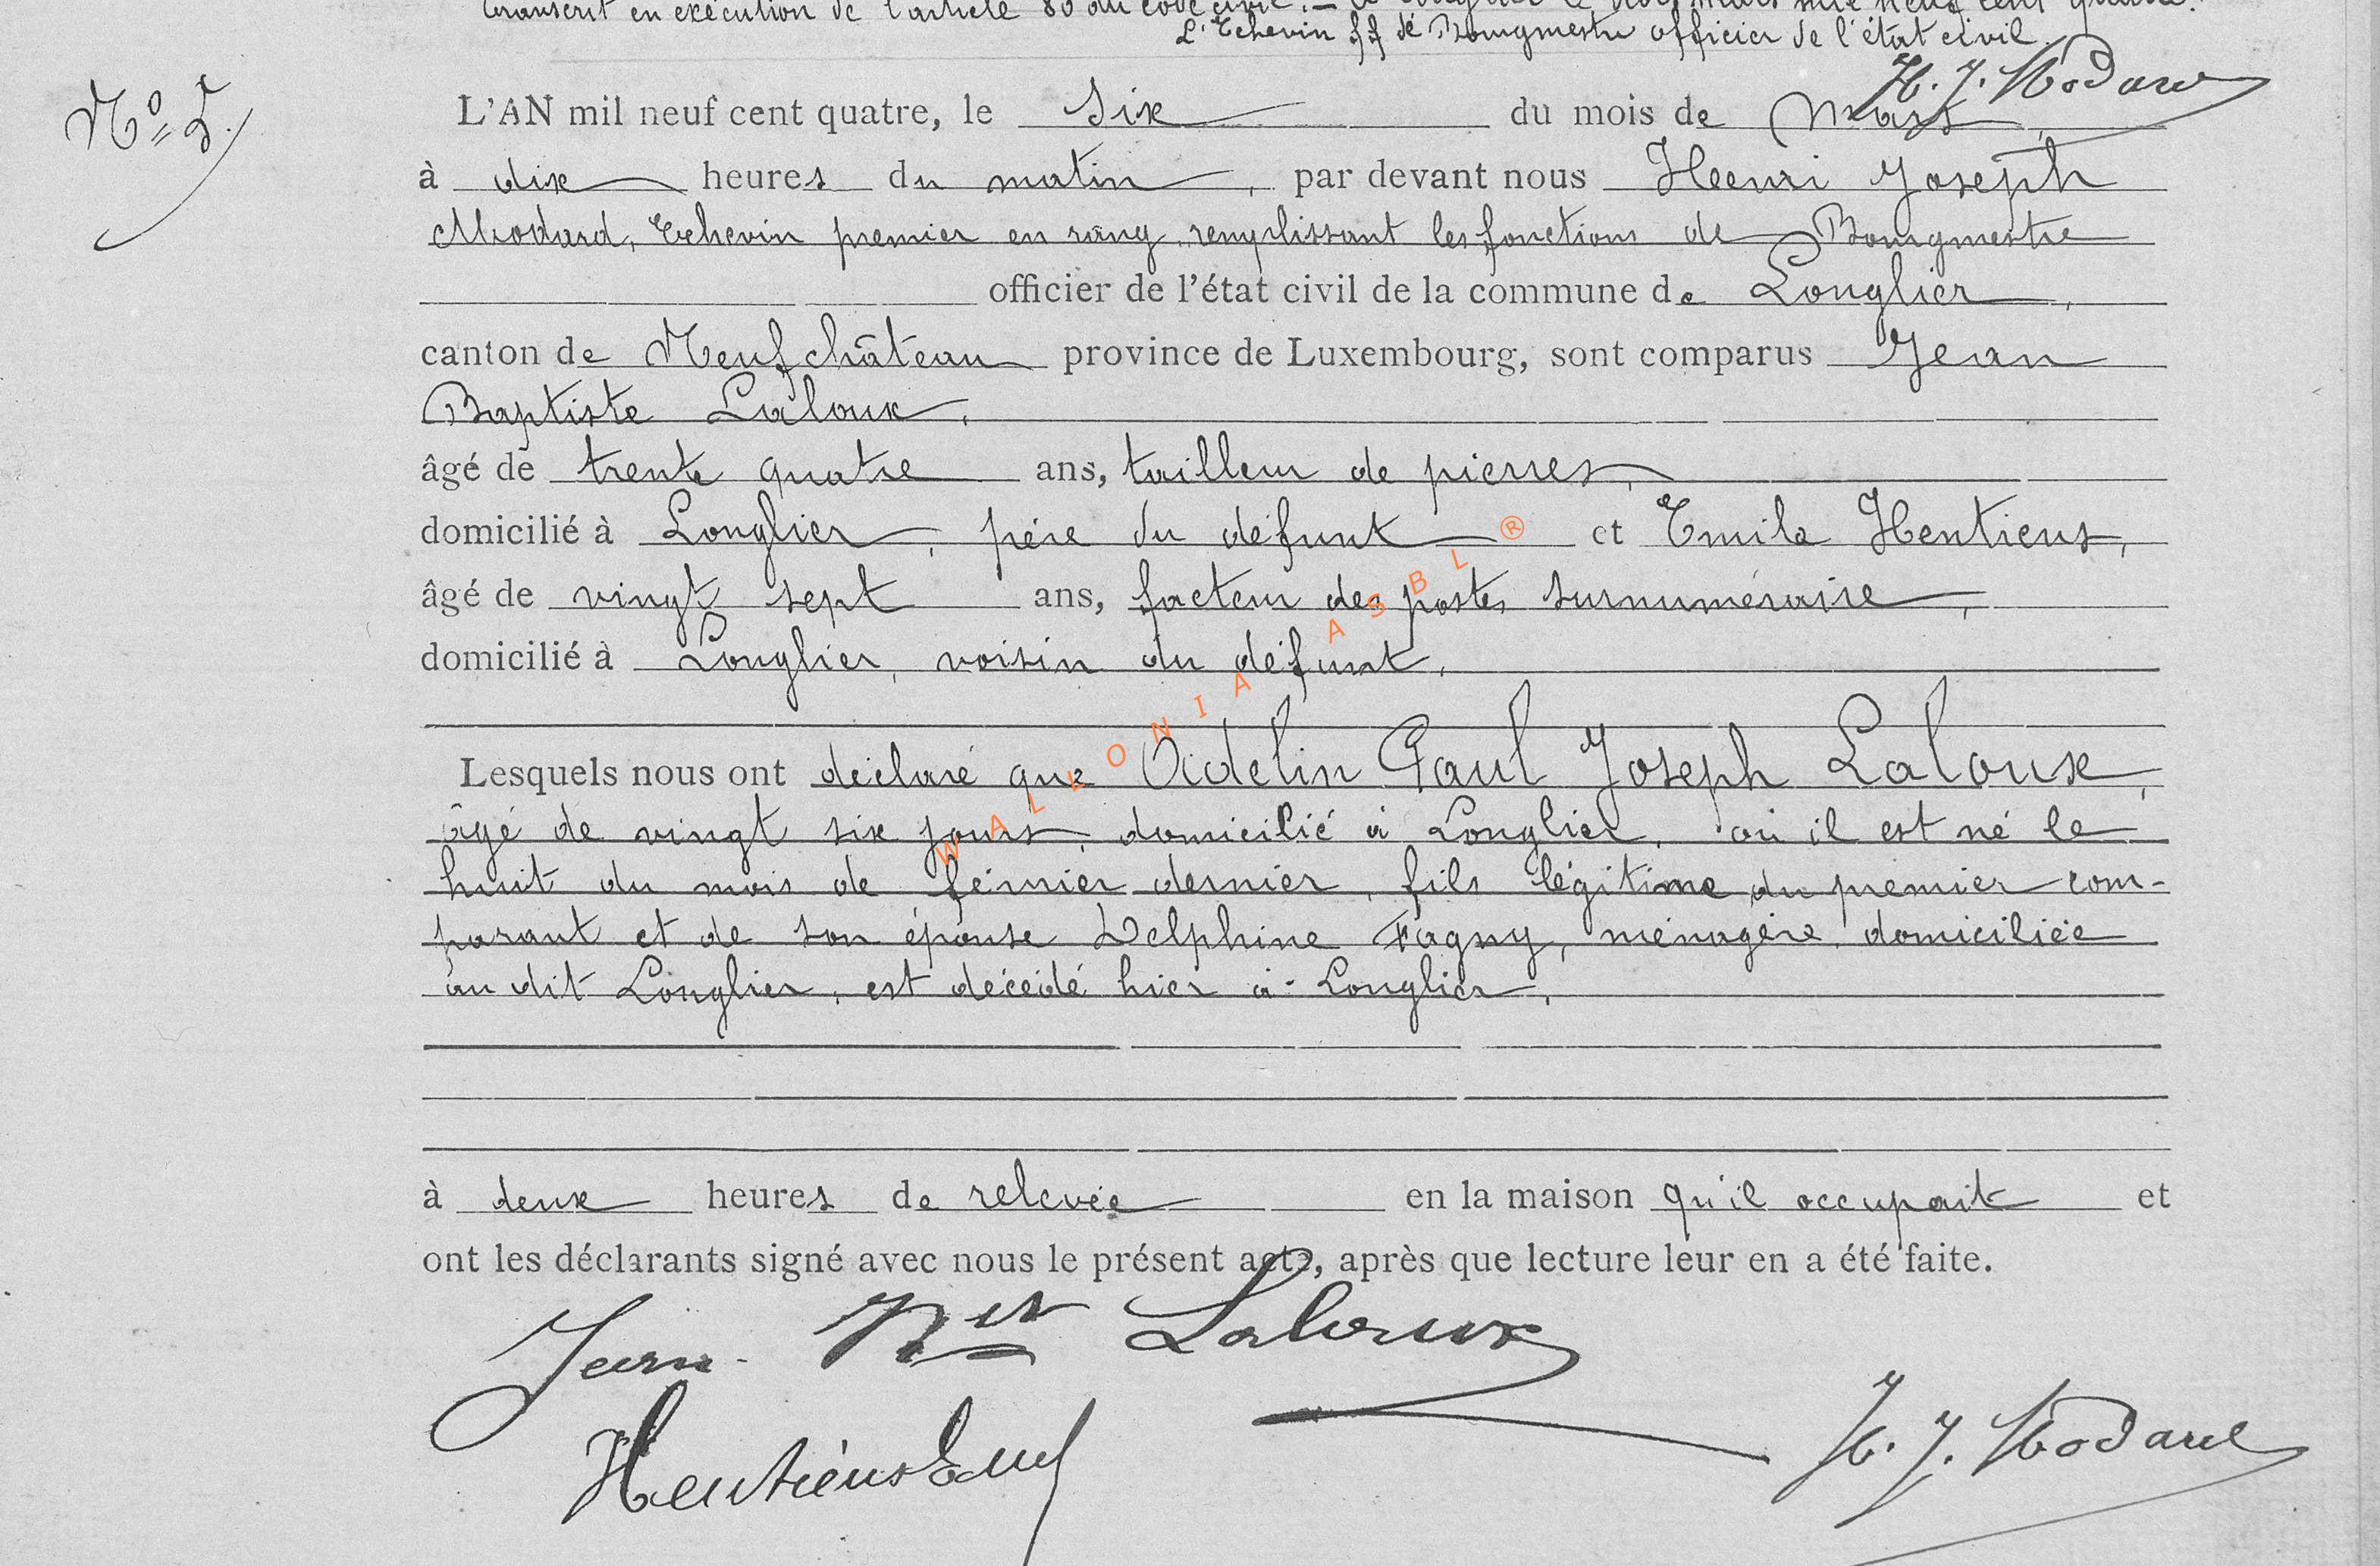 transcrit en exécution de l'article 80 du code civil. — à Longlier le mars mil neuf cent quatre.
L'Echevin ff de Bourgmestre officier de l'état civil.
H. J. Modard
Nº 5.
L'AN mil neuf cent quatre, le six du mois de Mars,
à dix heures du matin, par devant nous Henri Joseph
Modard, Echevin premier en rang, remplissant les fonctions de Bourgmestre
officier de l'état civil de la commune de Longlier,
canton de Neufchâteau province de Luxembourg, sont comparus Jean
Baptiste Laloux,
âgé de trente quatre ans, tailleur de pierres,
domicilié à Longlier, père du défunt et Emile Hentiens,
âgé de vingt sept ans, facteur des postes surnuméraire,
domicilié à Longlier, voisin du défunt,
Lesquels nous ont déclaré que Adelin Paul Joseph Laloux,
âgé de vingt six jours, domicilié à Longlier, où il est né le
huit du mois de février dernier, fils légitime du premier com-
parant et de son épouse Delphine Fagny, ménagère, domiciliée
au dit Longlier, est décédé hier à Longlier,
à deux heures de relevée en la maison qu'il occupait et
ont les déclarants signé avec nous le présent acte, après que lecture leur en a été faite.
Jean Bte Laloux
Hentiens Emile
H. J. Modard
WALLONIA ASBL ®